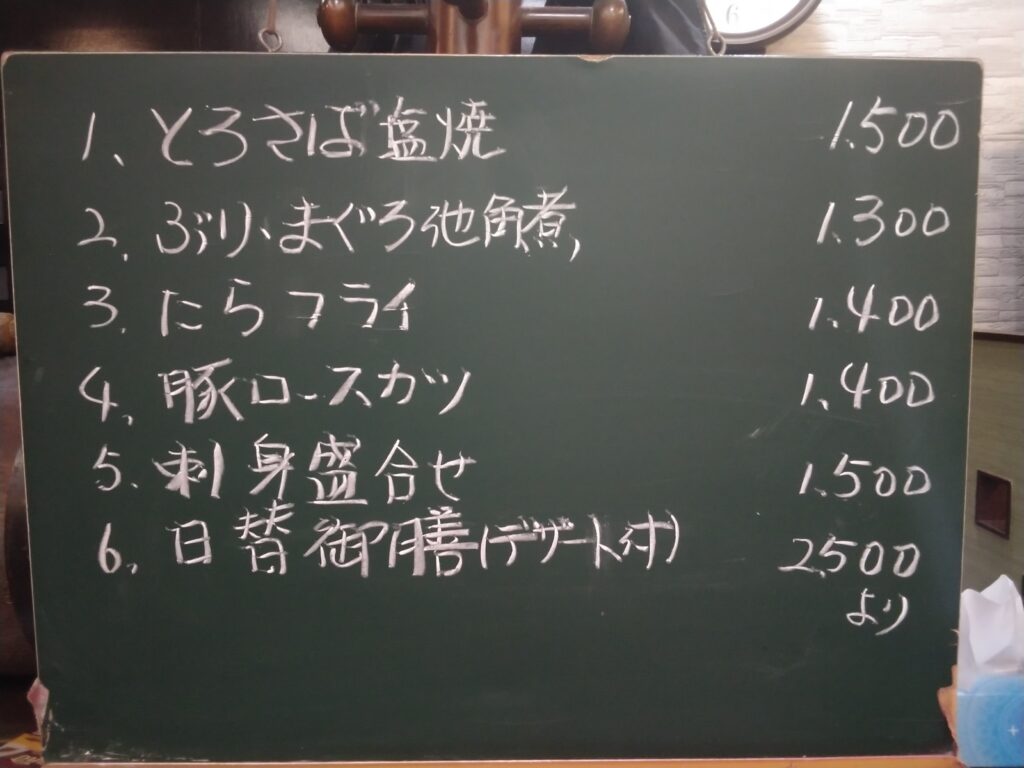 1、とろさば塩焼 1.500
2、ぶり、まぐろ池角煮、 1.300
3、たらフライ 1.400
4、豚ロースカツ 1.400
5、刺身盛合せ 1.500
6、日替御膳(デザート付) 2.500
より
6